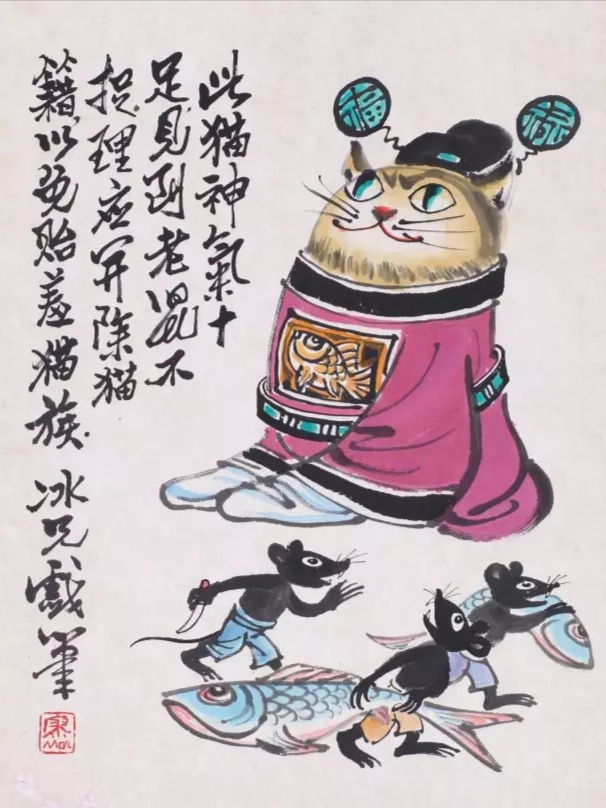 福
祿
此猫神氣十
足見到老鼠不
捉理应开除猫
籍以免贻羞猫族 冰兄戲筆